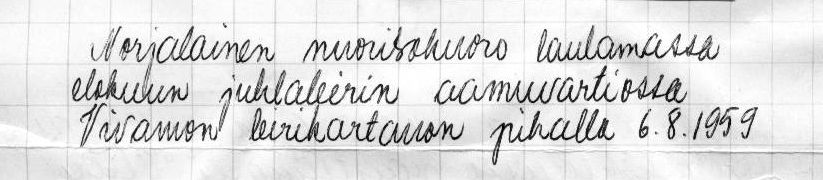 Norjalainen nuorisokuoro laulamassa
elokuun juhlaleirin aamuvartiossa
Vivamon leirikartanon pihalla 6.8.1959